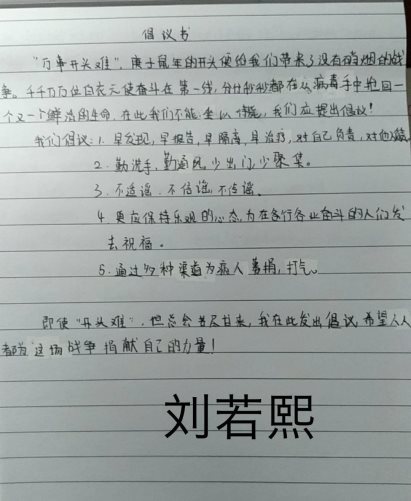 倡议书
"万事开头难",庚子鼠年的开头便给我们带来了没有硝烟的战
争。千千万万位白衣天使奋斗在第一线,分分秒秒都在从病毒手中抢回一
个又一个鲜活的生命,在此我们不能,我们应提出倡议!
我们倡议:1.早发现,早报告,早隔离,早治疗,对自己负责,对他人负
2.勤洗手,勤通风,少出门,少聚集。
3.不造谣、不信谣、不传谣。
4.更应保持乐观的心态,为在各行各业奋斗的人们发
去祝福。
5.通过多种渠道为病人募捐,打气。
即使"开头难",但总会苦尽甘来,我在此发出倡议,希望人人
都为这场战争捐献自己的力量!
刘若熙